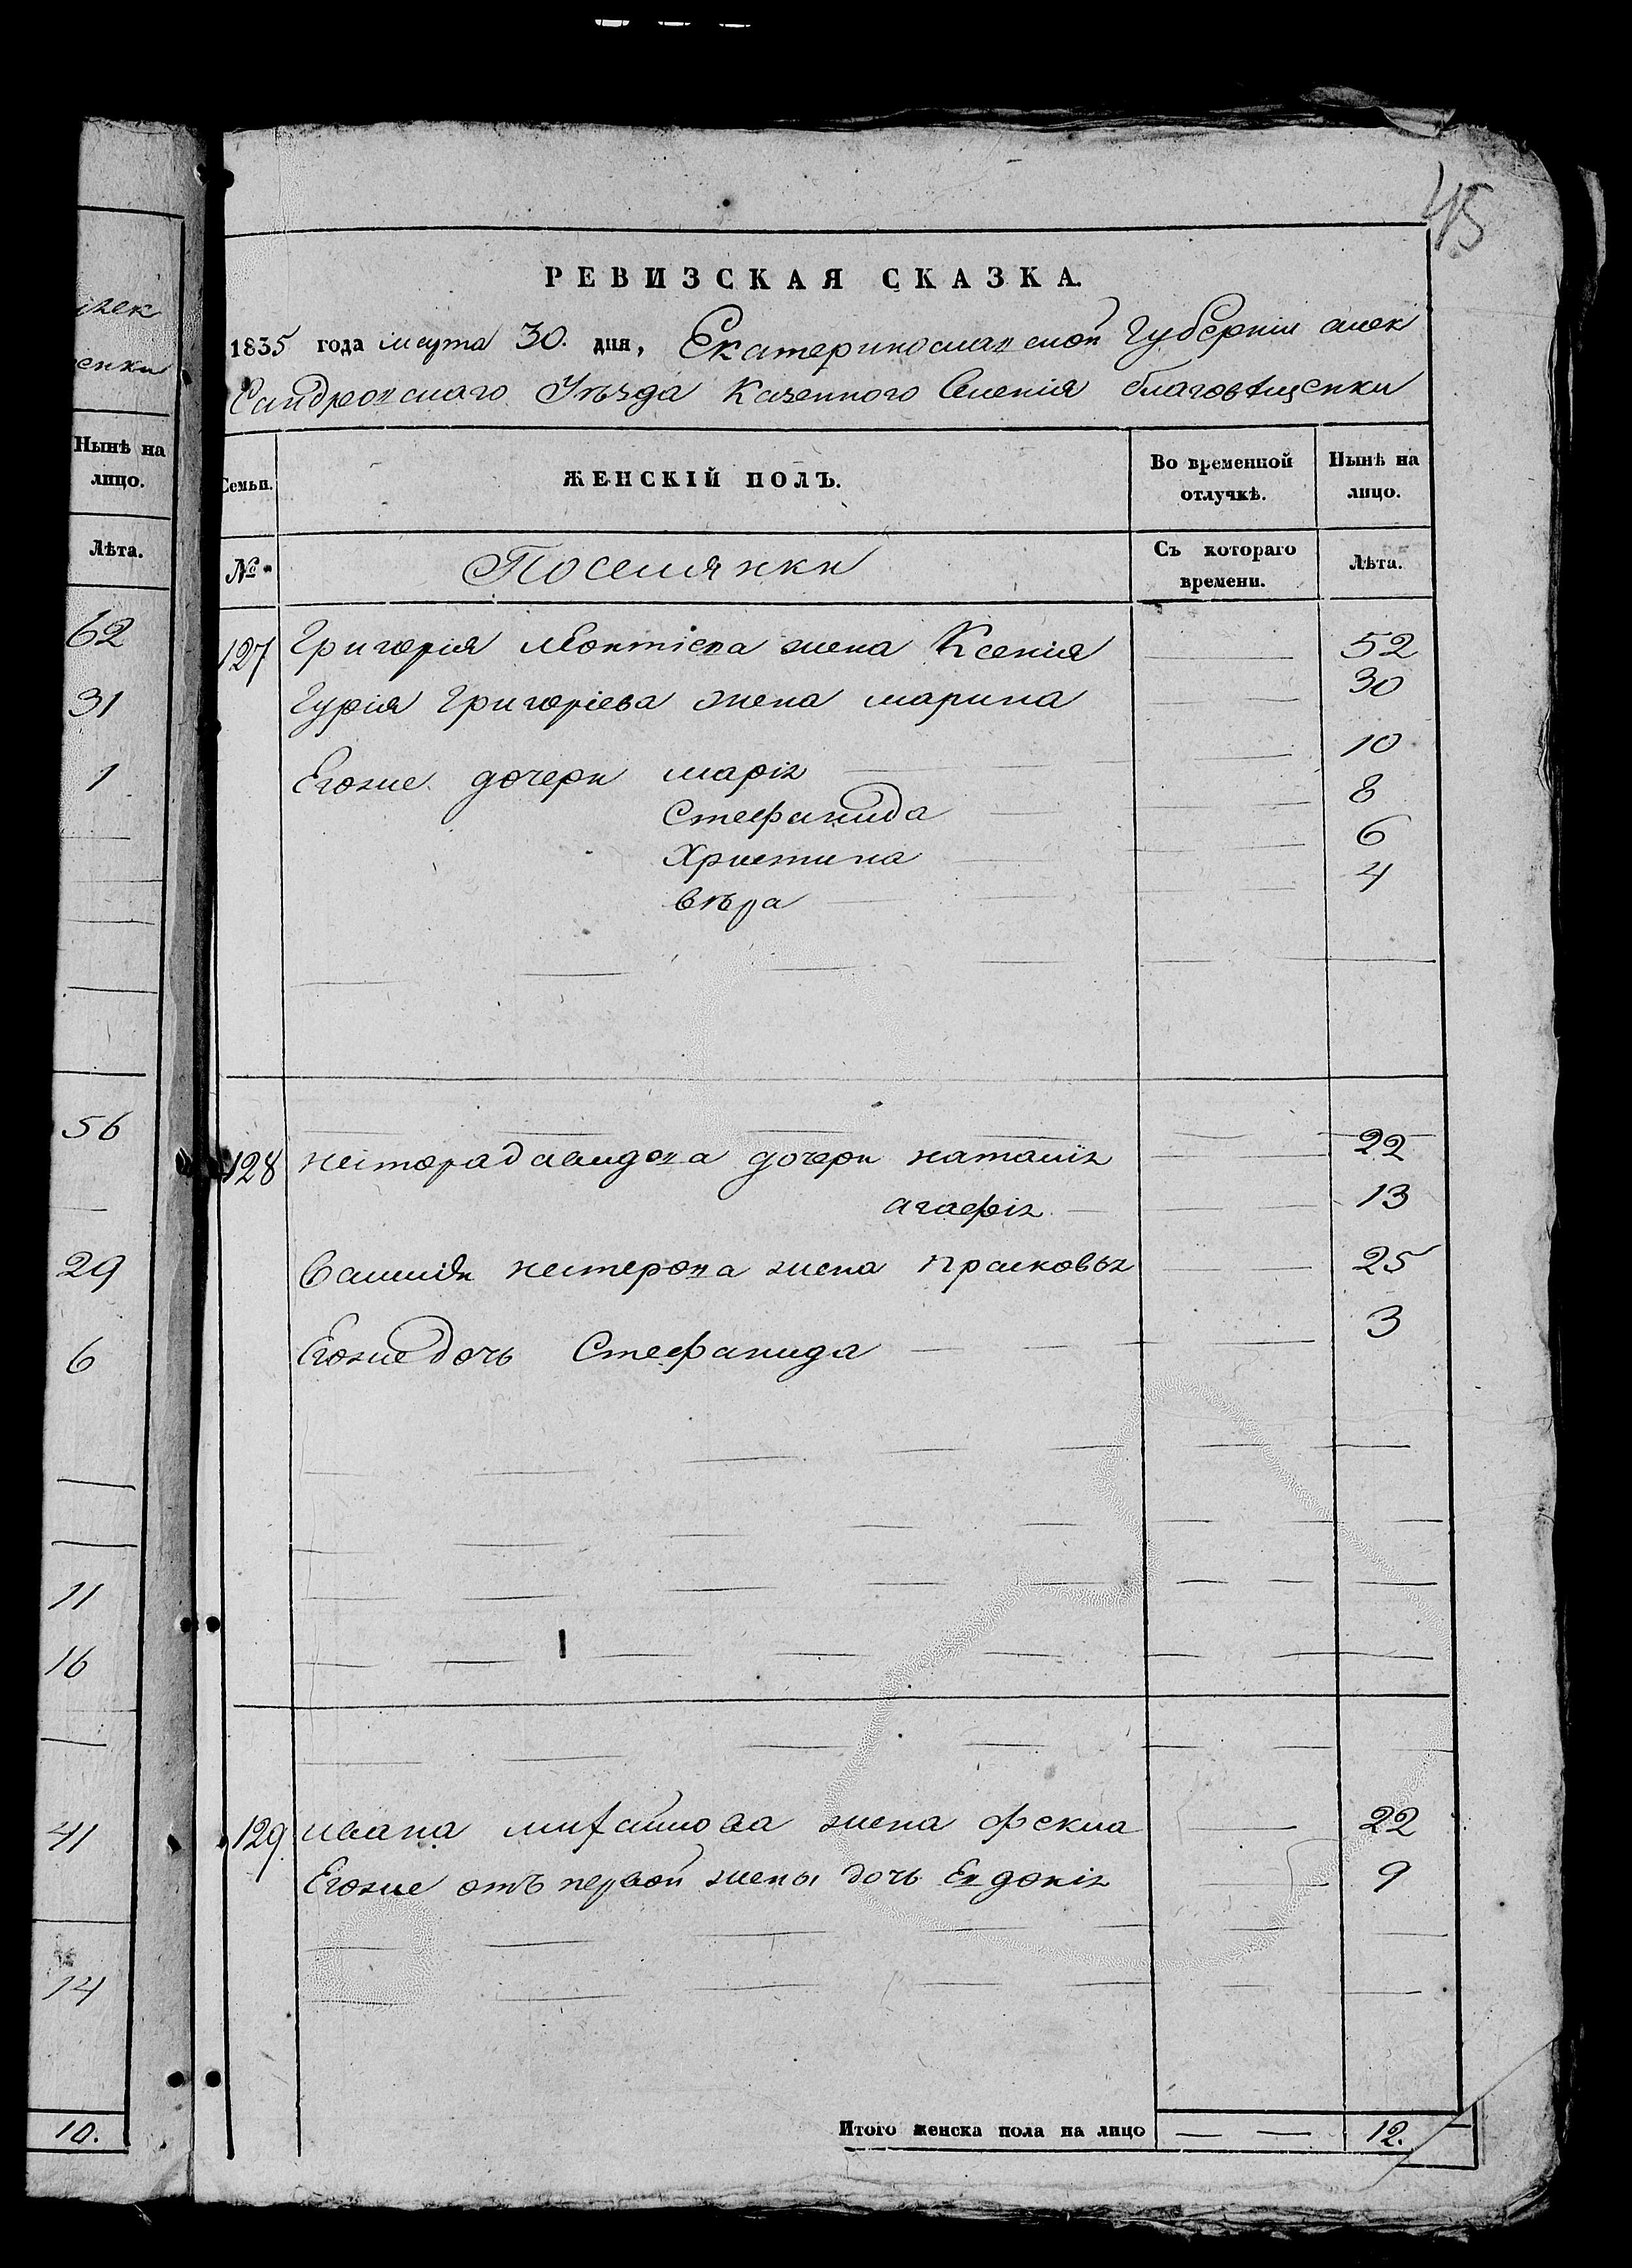 45
РЕВИЗСКАЯ СКАЗКА.
1835 года марта 30. дня, Екатеринославской Губерніи алек
Сандровскаго Уѣзда Казенного Селенія благовѣщенки
Семьи. ЖЕНСКІЙ ПОЛЪ. Во временной отлучкѣ. Нынѣ на лицо.
№ Поселянки Съ котораго времени. Лѣта.
127 Григорія Леонтіева жена Ксенія 52
Гурія Григоріева жена марина 30
Егоже дочери марія 10
Стефанида 8
Христина 6
вѣра 4
128 нестора давидова дочери наталія 22
агафія 13
Василія нестерова жена прасковья 25
Егоже дочь Стефанида 3
129 ивана михайлова жена фекла 22
Егоже отъ первой жены дочь Евдокія 9
Итого женска пола на лицо 12.
енки
Нынѣ на
лицо.
Лѣта.
62
31
1
56
29
6
11
16
41
14
10.